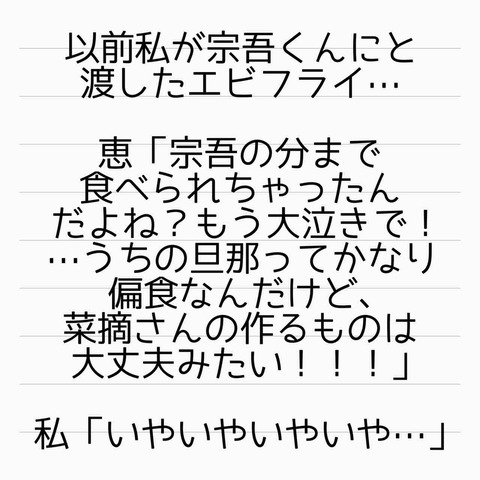 以前私が宗吾くんにと
渡したエビフライ…
恵「宗吾の分まで
食べられちゃったん
だよね？もう大泣きで！
…うちの旦那ってかなり
偏食なんだけど、
菜摘さんの作るものは
大丈夫みたい！！！」
私「いやいやいやいや…」